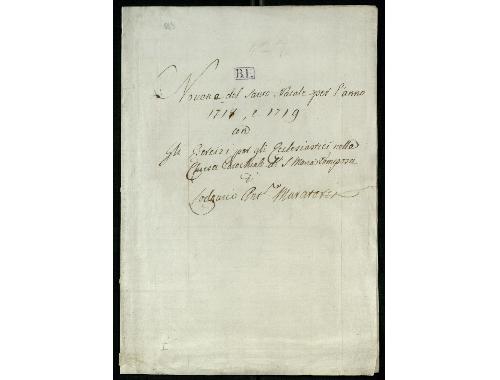 B.L.
Novena del Santo Natale per l'anno
1718, e 1719
con
Gli Esercizi per gli Eclesiastici nella
Chiesa Parochiale di S. Maria Pomposa
di
Lodovico Ant.º Muratori